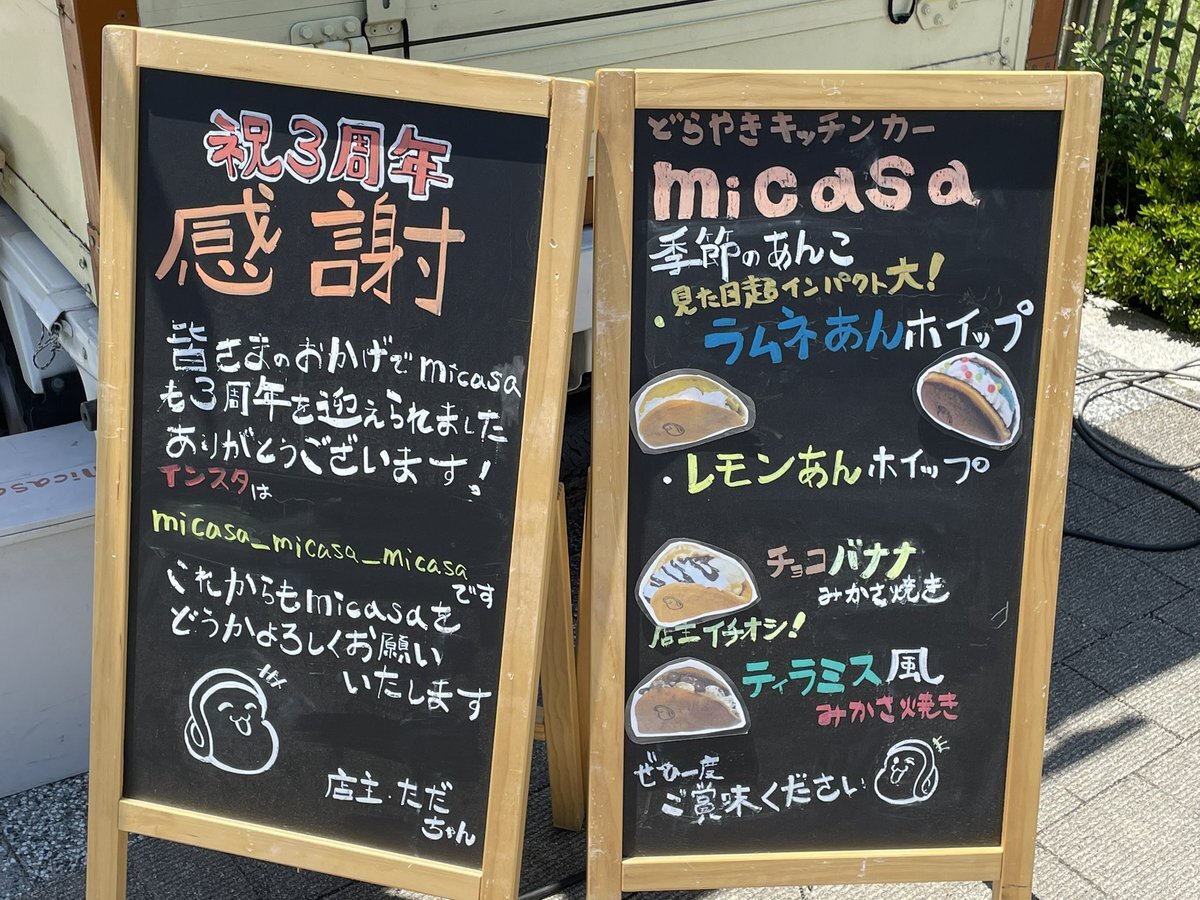 祝3周年
感謝
皆さまのおかげでmicasa
も3周年を迎えられました
ありがとうございます!
インスタは
micasa_micasa_micasa
です
これからもmicasaを
どうかよろしくお願い
いたします
店主・ただ
ちゃん
micasa
どらやきキッチンカー
micasa
季節のあんこ
見た目超インパクト大!
・ラムネあんホイップ
・レモンあんホイップ
チョコバナナ
みかさ焼き
店主イチオシ!
ティラミス風
みかさ焼き
ぜひ一度
ご賞味ください